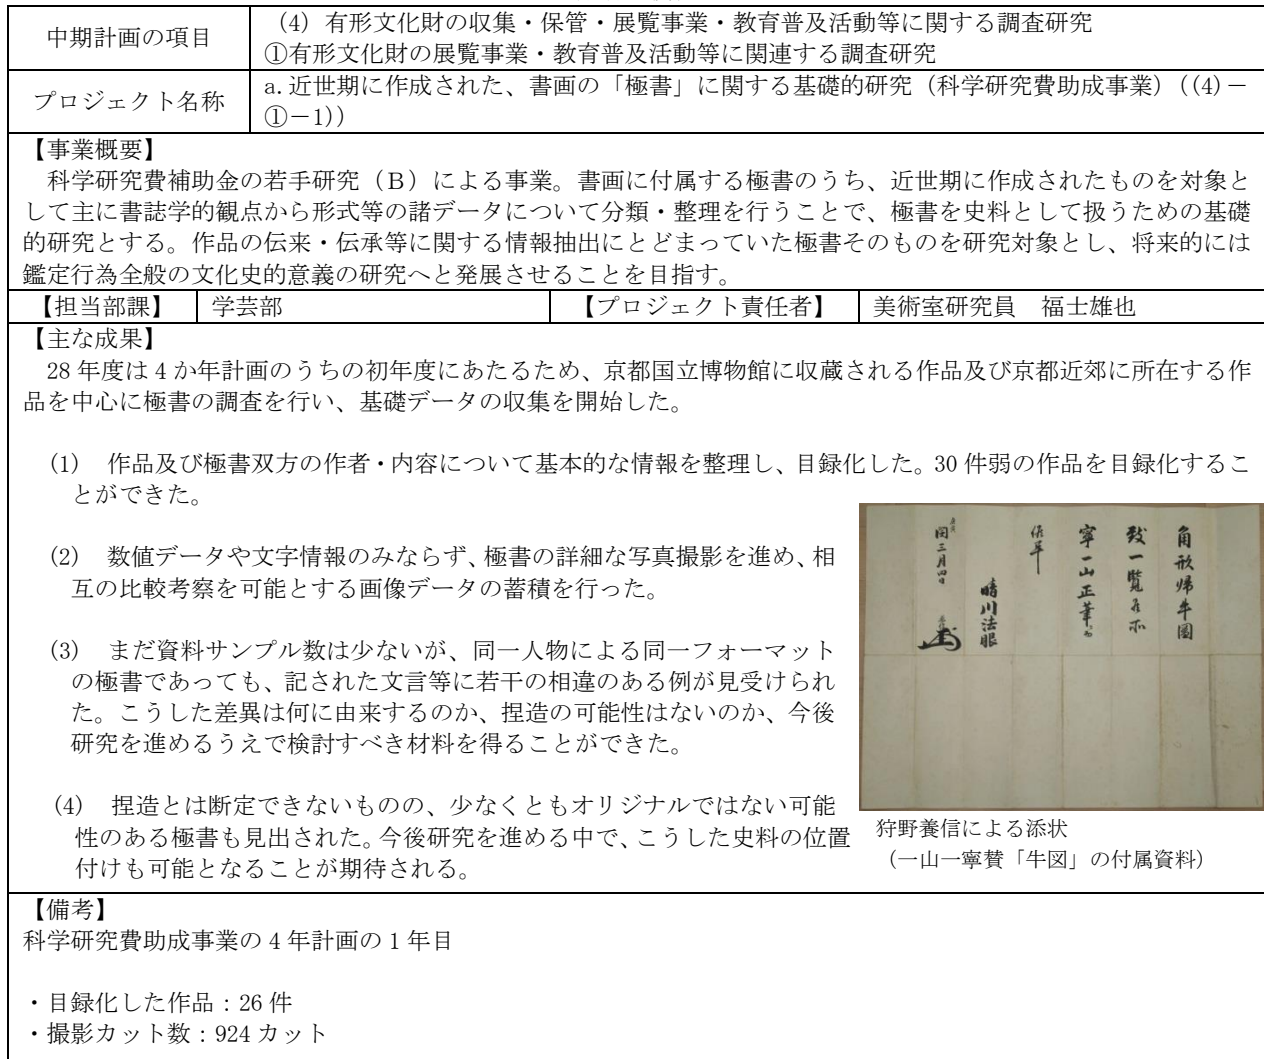 中期計画の項目
(4) 有形文化財の収集・保管・展覧事業・教育普及活動等に関する調査研究
①有形文化財の展覧事業・教育普及活動等に関連する調査研究
プロジェクト名称
a.近世期に作成された、書画の「極書」に関する基礎的研究（科学研究費助成事業）((4)－
①－1))
【事業概要】
科学研究費補助金の若手研究（Ｂ）による事業。書画に付属する極書のうち、近世期に作成されたものを対象と
して主に書誌学的観点から形式等の諸データについて分類・整理を行うことで、極書を史料として扱うための基礎
的研究とする。作品の伝来・伝承等に関する情報抽出にとどまっていた極書そのものを研究対象とし、将来的には
鑑定行為全般の文化史的意義の研究へと発展させることを目指す。
【担当部課】 学芸部 【プロジェクト責任者】 美術室研究員 福士雄也
【主な成果】
28 年度は 4 か年計画のうちの初年度にあたるため、京都国立博物館に収蔵される作品及び京都近郊に所在する作
品を中心に極書の調査を行い、基礎データの収集を開始した。
(1) 作品及び極書双方の作者・内容について基本的な情報を整理し、目録化した。30 件弱の作品を目録化するこ
とができた。
(2) 数値データや文字情報のみならず、極書の詳細な写真撮影を進め、相
互の比較考察を可能とする画像データの蓄積を行った。
(3) まだ資料サンプル数は少ないが、同一人物による同一フォーマット
の極書であっても、記された文言等に若干の相違のある例が見受けられ
た。こうした差異は何に由来するのか、捏造の可能性はないのか、今後
研究を進めるうえで検討すべき材料を得ることができた。
(4) 捏造とは断定できないものの、少なくともオリジナルではない可能
性のある極書も見出された。今後研究を進める中で、こうした史料の位置
付けも可能となることが期待される。
角形帰牛圖
致一覧候所
寧一山正筆
閏三月四日
晴川法眼
狩野養信による添状
（一山一寧賛「牛図」の付属資料）
【備考】
科学研究費助成事業の 4 年計画の 1 年目
・目録化した作品：26 件
・撮影カット数：924 カット